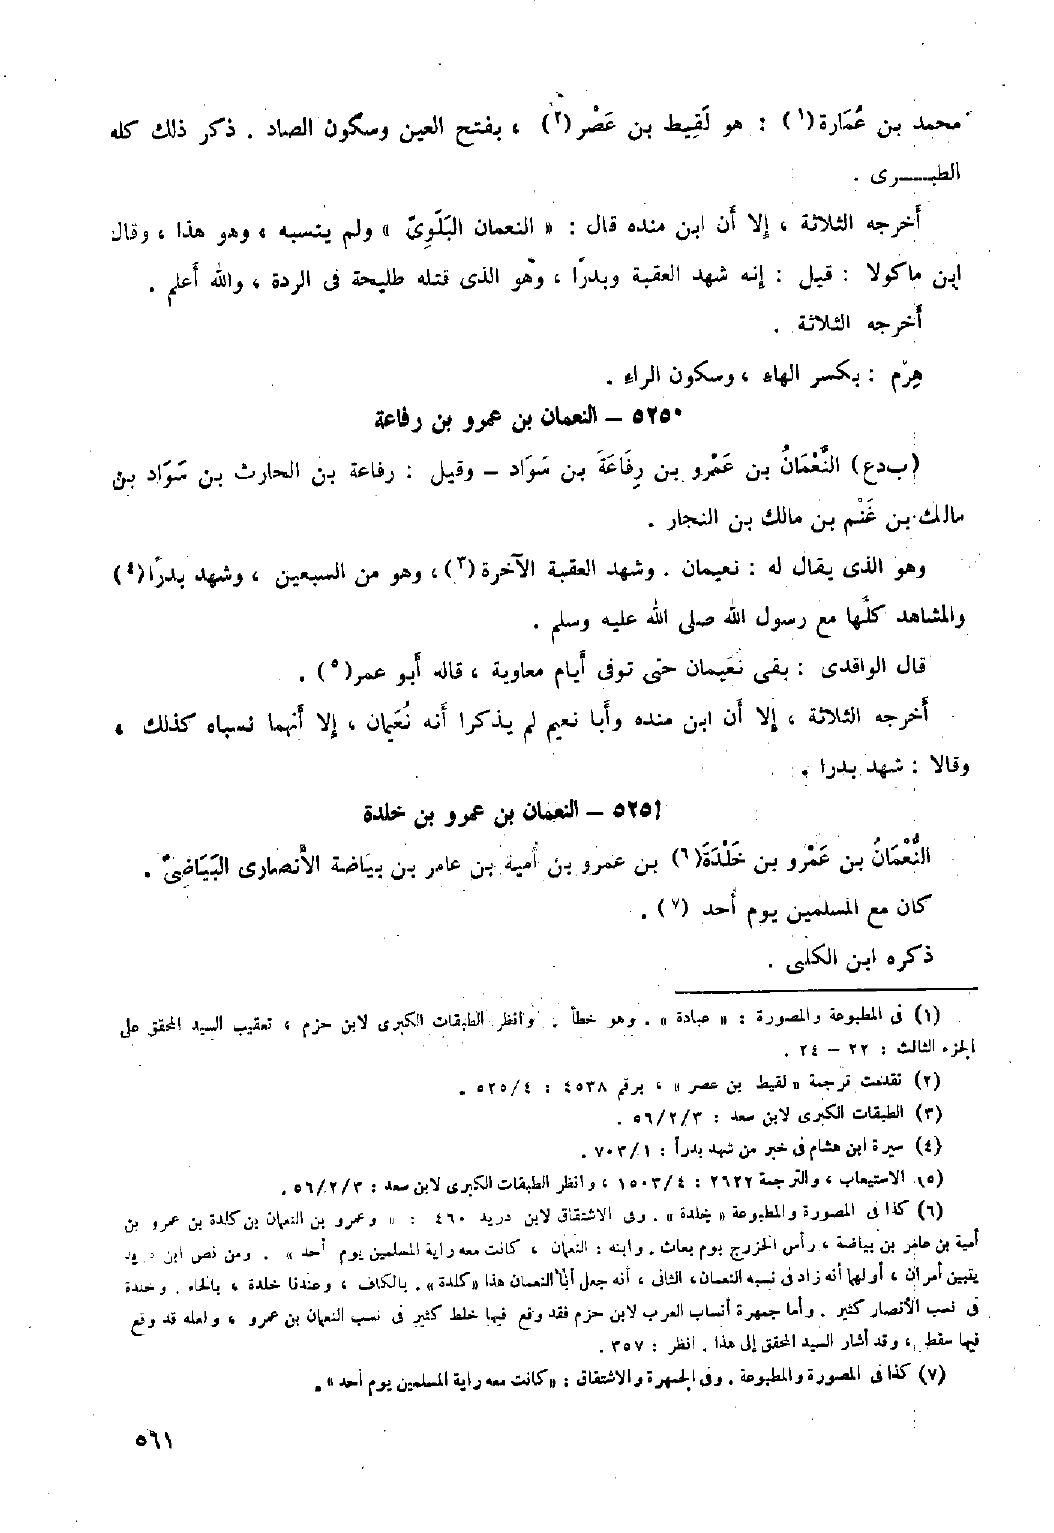 محمد بن عُمَارة(١) : هو لَقِيط بن عَصْر(٢) ، بفتح العين وسكون الصاد . ذكر ذلك كله
الطبـــرى .
أَخرجه الثلاثة ، إلا أَن ابن منده قال : « النعمان البَلَوِىّ » ولم ينسبه ، وهو هذا ، وقال
ابن ماكولا : قيل : إنه شهد العقبة وبدرًا ، وهو الذى قتله طليحة فى الردة ، والله أَعلم .
أَخرجه الثلاثة .
هِرْم : بكسر الهاء ، وسكون الراء .
٥٢٥٠ – النعمان بن عمرو بن رفاعة
(ب د ع) النُّعْمَانُ بن عَمْرو بن رِفَاعَةَ بن سَوَاد – وقيل : رفاعة بن الحارث بن سَوَاد بن
مالك بن غَنْم بن مالك بن النجار .
وهو الذى يقال له : نعيمان . وشهد العقبة الآخرة(٣) ، وهو من السبعين ، وشهد بدرًا(٤)
والمشاهد كلَّها مع رسول الله صلى الله عليه وسلم .
قال الواقدى : بقى نُعَيمان حتى توفى أَيام معاوية ، قاله أَبو عمر(٥) .
أَخرجه الثلاثة ، إلا أَن ابن منده وأَبا نعيم لم يذكرا أَنه نُعَيمان ، إلا أَنهما نسباه كذلك ،
وقالا : شهد بدرا .
٥٢٥١ – النعمان بن عمرو بن خلدة
النُّعْمَانُ بن عَمْرو بن خَلْدَةَ(٦) بن عمرو بن أُمية بن عامر بن بياضة الأَنصارى البَيَاضِىّ .
كان مع المسلمين يوم أُحد (٧) .
ذكره ابن الكلبى .
(١) فى المطبوعة والمصورة : « عبادة » . وهو خطأ . وانظر الطبقات الكبرى لابن حزم ، تعقيب السيد المحقق على
الجزء الثالث : ٢٢ – ٢٤ .
(٢) تقدمت ترجمة « لقيط بن عصر » ، برقم ٤٥٣٨ : ٥٢٥/٤ .
(٣) الطبقات الكبرى لابن سعد : ٥٦/٢/٣ .
(٤) سيرة ابن هشام فى خبر من شهد بدرأ : ٧٠٣/١ .
(٥) الاستيعاب ، والترجمة ٢٦٢٢ : ١٥٠٣/٤ ، وانظر الطبقات الكبرى لابن سعد : ٥٦/٢/٣ .
(٦) كذا فى المصورة والمطبوعة « خلدة » . وفى الاشتقاق لابن دريد ٤٦٠ : « وعمرو بن النعمان بن كلدة بن عمرو بن
أمية بن عامر بن بياضة ، رأس الخزرج يوم بعاث . وابنه : النعمان ، كانت معه راية المسلمين يوم أحد » . ومن نص ابن دريد
يتبين أمران ، أولها أنه زاد فى نسبه النعمان ، الثانى ، أنه جعل أبا النعمان هذا « كلدة » . بالكاف ، وعندنا خلدة ، بالخاء . وخلدة
فى نسب الأنصار كثير . وأما جمهرة أنساب العرب لابن حزم فقد وقع فيها خلط كثير فى نسب النعمان بن عمرو ، ولعله قد وقع
فيها سقط ، وقد أشار السيد المحقق إلى هذا . انظر : ٣٥٧ .
(٧) كذا فى المصورة والمطبوعة . وفى الجمهرة والاشتقاق : « كانت معه راية المسلمين يوم أحد » .
٥٦١